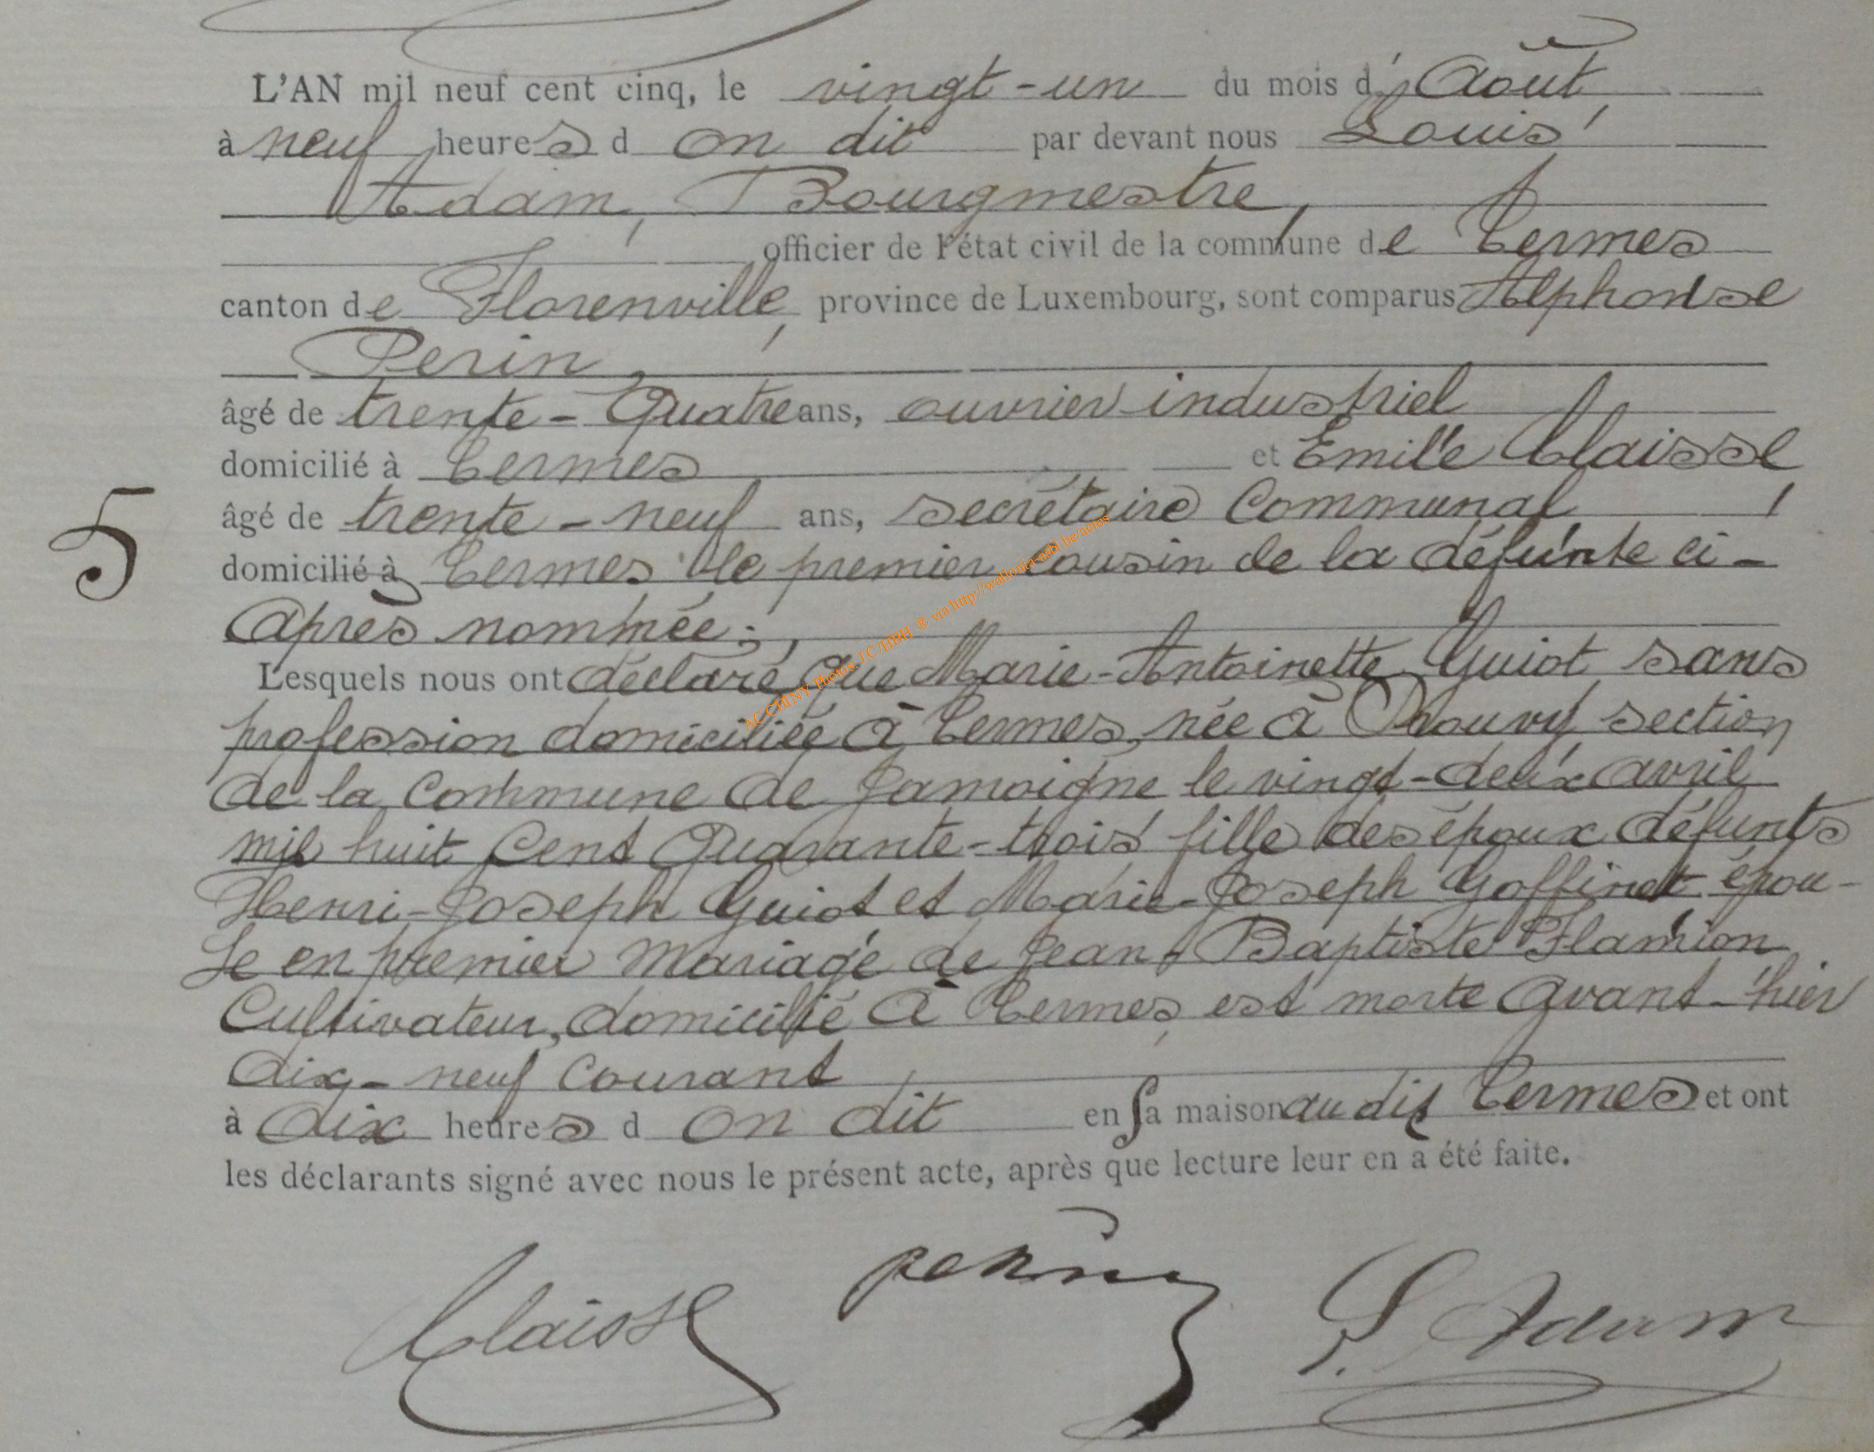 L'AN mil neuf cent cinq, le vingt-un du mois d' Août,
à neuf heures d on dit par devant nous Louis
Adam, Bourgmestre,
officier de l'état civil de la commune de Termes
canton de Florenville, province de Luxembourg, sont comparus Alphonse
Perin,
âgé de trente-Quatre ans, ouvrier industriel
domicilié à Termes et Emile Claisse
âgé de trente-neuf ans, secrétaire Communal,
domicilié à Termes, le premier Cousin de la défunte ci-
5
Après nommée;
Lesquels nous ont déclaré Que Marie-Antoinette Guiot sans
profession domiciliée à Termes, née à Prouvy section
de la Commune de Jamoigne le vingt-deux avril
mil huit Cent Quarante-trois fille des époux défunts
Henri-Joseph Guiot et Marie-Joseph Goffinet épou-
se en premier Mariage de Jean-Baptiste Flamion
Cultivateur, domicilié à Termes, est morte Avant-hier
dix-neuf Courant
à dix heures d on dit en sa maison audit Termes et ont
les déclarants signé avec nous le présent acte, après que lecture leur en a été faite.
Claisse perin L. Adam